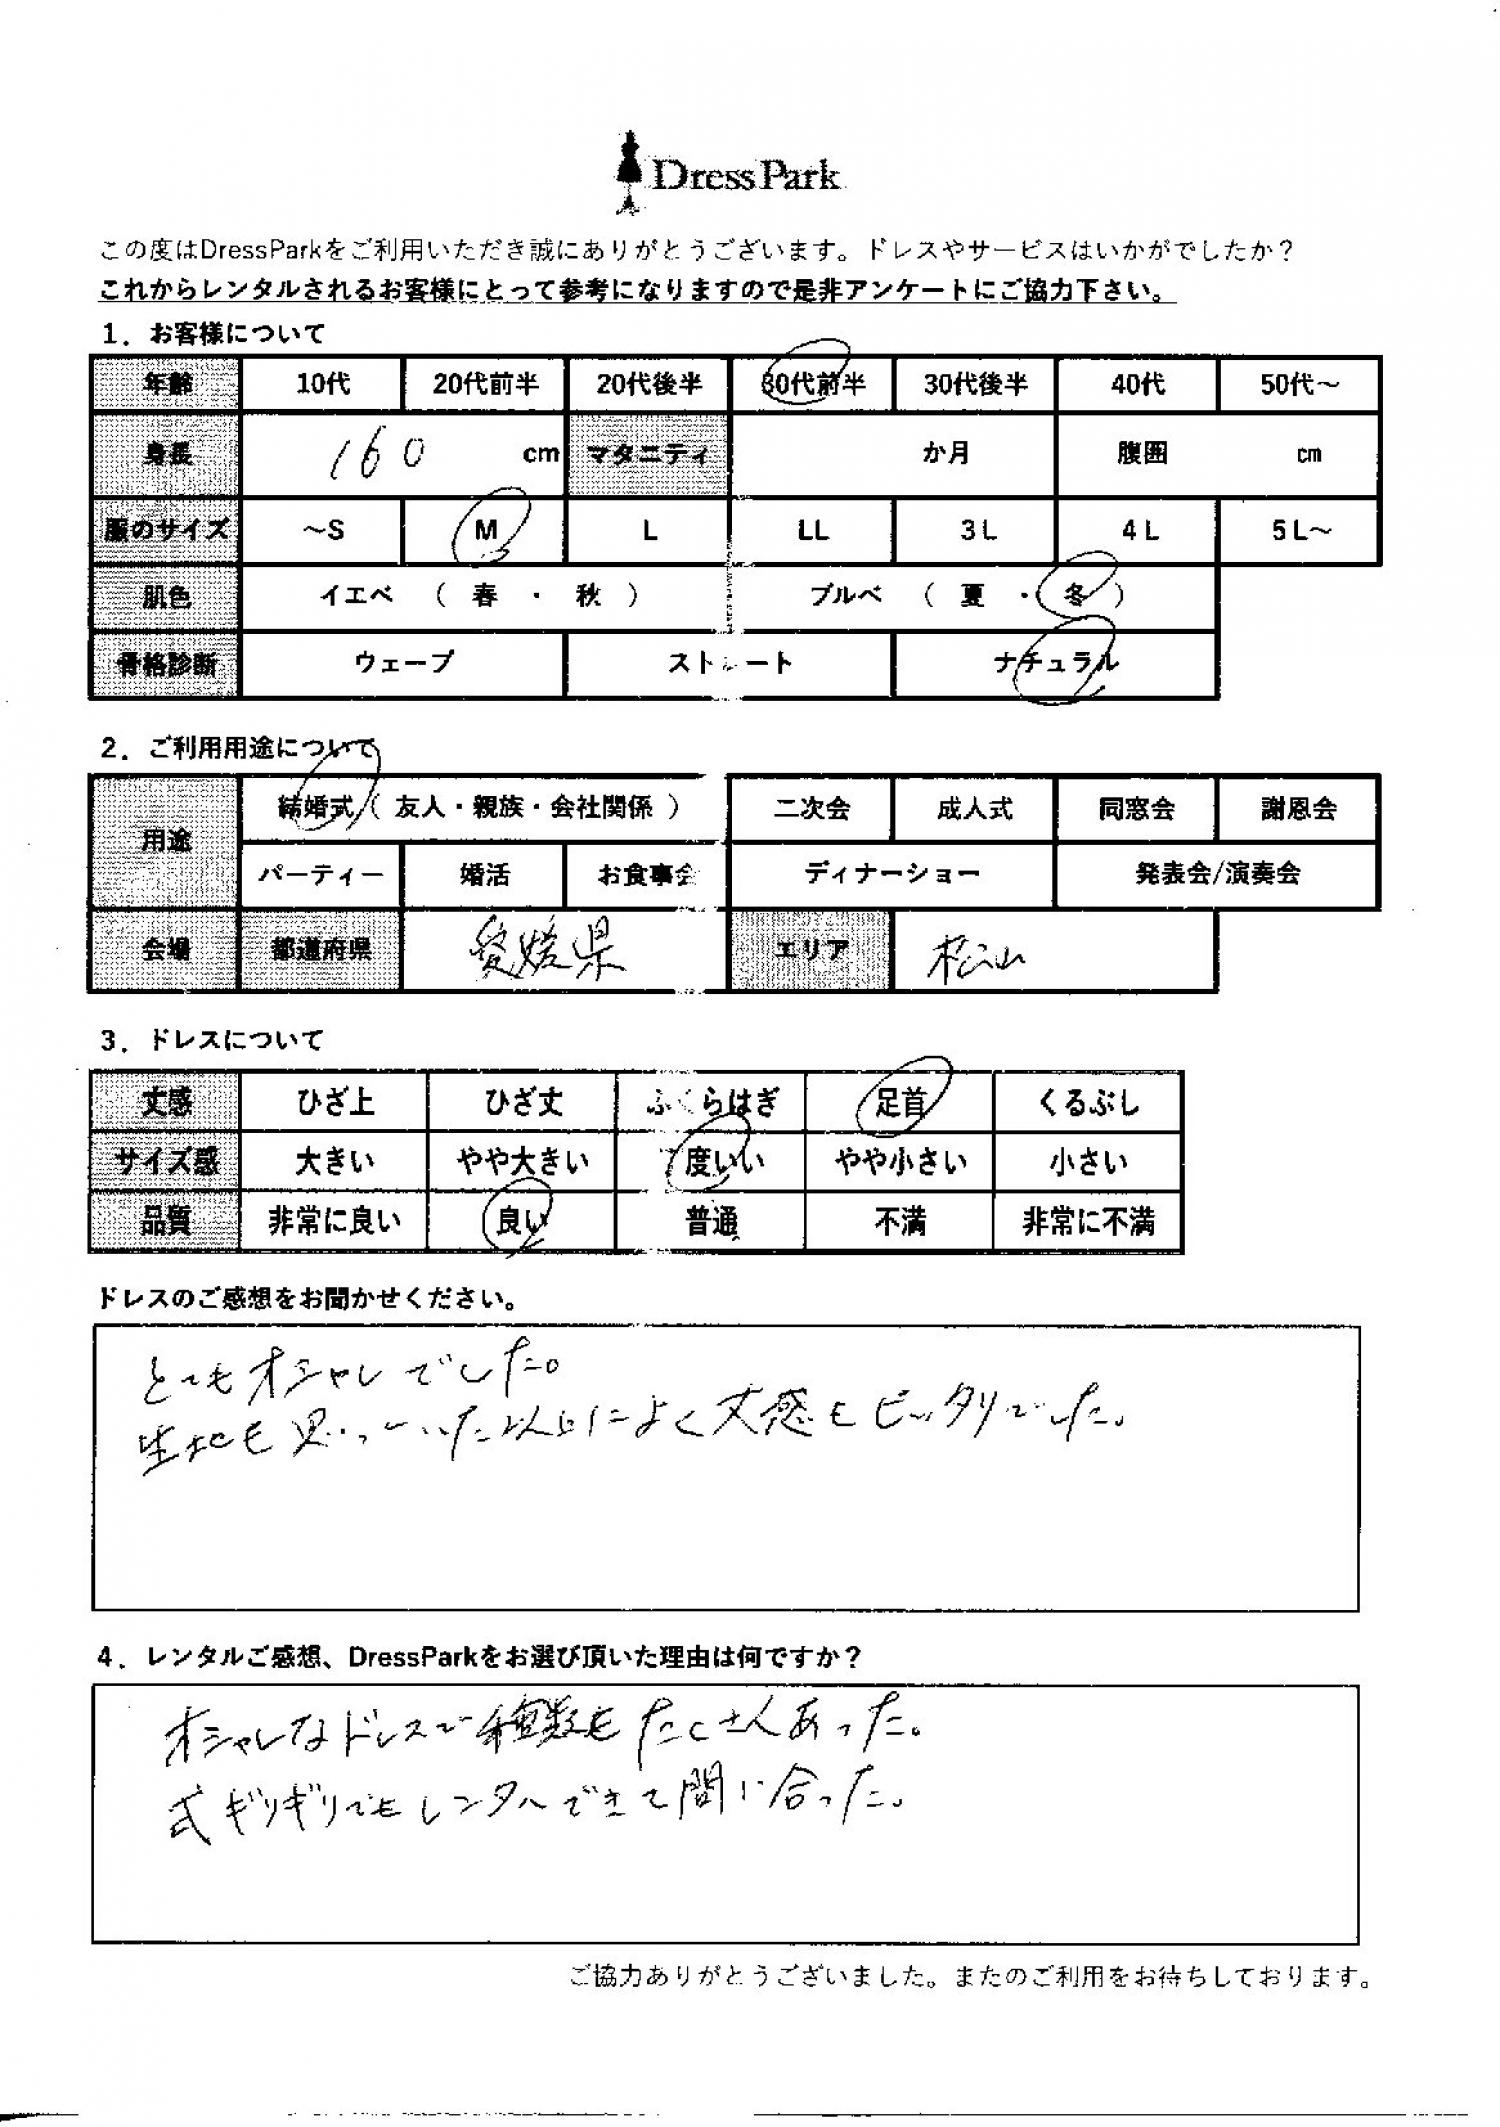 DressPark
この度はDressParkをご利用いただき誠にありがとうございます。ドレスやサービスはいかがでしたか？
これからレンタルされるお客様にとって参考になりますので是非アンケートにご協力下さい。
1．お客様について
年齢 10代 20代前半 20代後半 30代前半 30代後半 40代 50代～
身長 160 cm マタニティ か月 腹囲 cm
服のサイズ ～S M L LL 3L 4L 5L～
肌色 イエベ （ 春 ・ 秋 ） ブルベ （ 夏 ・ 冬 ）
骨格診断 ウェーブ ストレート ナチュラル
2．ご利用用途について
用途 結婚式（ 友人・親族・会社関係 ） 二次会 成人式 同窓会 謝恩会
パーティー 婚活 お食事会 ディナーショー 発表会/演奏会
会場 都道府県 愛媛県 エリア 松山
3．ドレスについて
丈感 ひざ上 ひざ丈 ふくらはぎ 足首 くるぶし
サイズ感 大きい やや大きい 度いい やや小さい 小さい
品質 非常に良い 良い 普通 不満 非常に不満
ドレスのご感想をお聞かせください。
とてもオシャレでした。
生地も思っていた以上によく丈感もピッタリでした。
4．レンタルご感想、DressParkをお選び頂いた理由は何ですか？
オシャレなドレスで種類もたくさんあった。
式ギリギリでもレンタルできて間に合った。
ご協力ありがとうございました。またのご利用をお待ちしております。